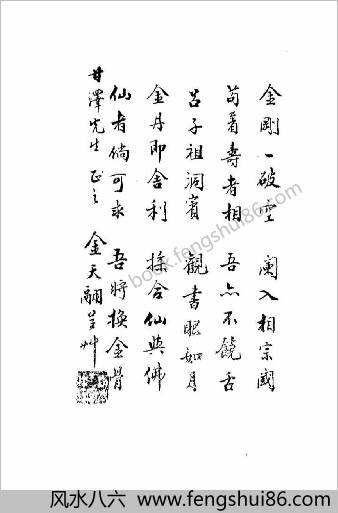 金剛一破空 闌入相宗國
苟着壽者相 吾亦不饒舌
呂子祖洞賓 觀書眼如月
金丹即舍利 揉合仙與佛
仙者倘可求 吾將換金骨
甘澤先生正之 金天翮呈艸
book.fengshui86.com
风水八六 www.fengshui86.com